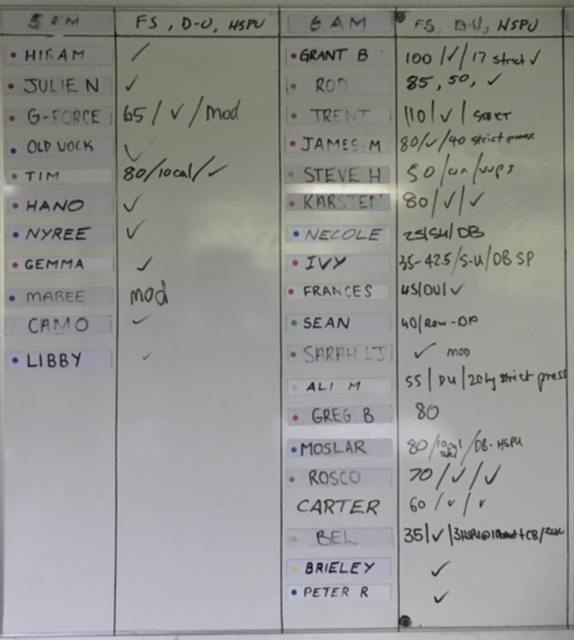 5 AM FS, D-U, HSPU
HIRAM ✓
JULIE N ✓
G-FORCE 65/✓/mod
OLD VOCK ✓
TIM 80/10cal/✓
HANO ✓
NYREE ✓
GEMMA ✓
MAREE mod
CAMO ✓
LIBBY ✓
6 AM FS, D-U, HSPU
GRANT B 100/✓/17 strict ✓
ROD 85, 50, ✓
TRENT 110/✓/
JAMES.M 80/✓/40 strict press
STEVE H 50/
KARSTEN 80/✓/✓
NECOLE 25/SU/DB
IVY 35-42.5/S-U/DB SP
FRANCES 45/DU/✓
SEAN 40/Row-DP
SARAH LJ ✓ mod
ALI M 55/DU/20kg strict press
GREG B 80
MOSLAR 80/ /DB-HSPU
ROSCO 70/✓/✓
CARTER 60/✓/✓
BEL 35/✓/
BRIELEY ✓
PETER R ✓